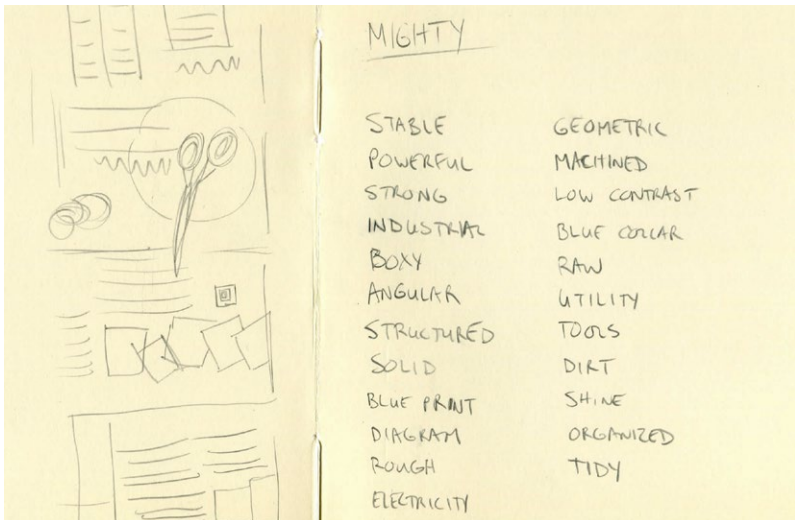 MIGHTY
STABLE
POWERFUL
STRONG
INDUSTRIAL
BOXY
ANGULAR
STRUCTURED
SOLID
BLUE PRINT
DIAGRAM
ROUGH
ELECTRICITY
GEOMETRIC
MACHINED
LOW CONTRAST
BLUE COLLAR
RAW
UTILITY
TOOLS
DIRT
SHINE
ORGANIZED
TIDY